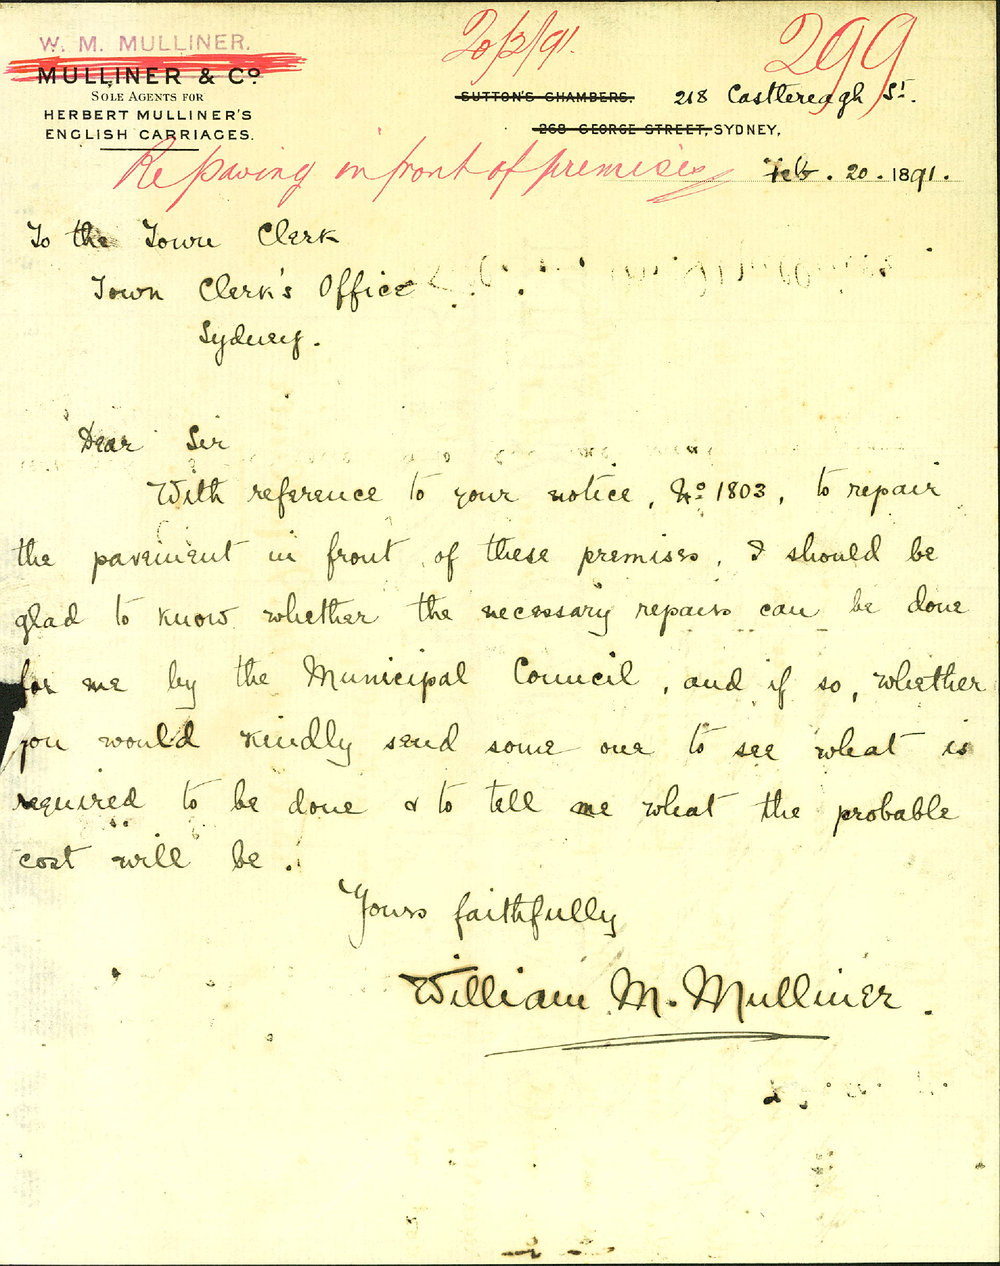 W. M. MULLINER.
20/2/91.
299
MULLINER & Co.
SOLE AGENTS FOR
HERBERT MULLINER'S
ENGLISH CARRIAGES.
SUTTON'S CHAMBERS. 218 Castlereagh St.
268 GEORGE STREET, SYDNEY,
Repaving in front of premises
Feb. 20. 1891.
To the Town Clerk
Town Clerk's Office
Sydney.
Dear Sir
With reference to your notice, No. 1803, to repair
the pavement in front of these premises, I should be
glad to know whether the necessary repairs can be done
for me by the Municipal Council, and if so, whether
you would kindly send some one to see what is
required to be done & to tell me what the probable
cost will be.
Yours faithfully
William M. Mulliner.